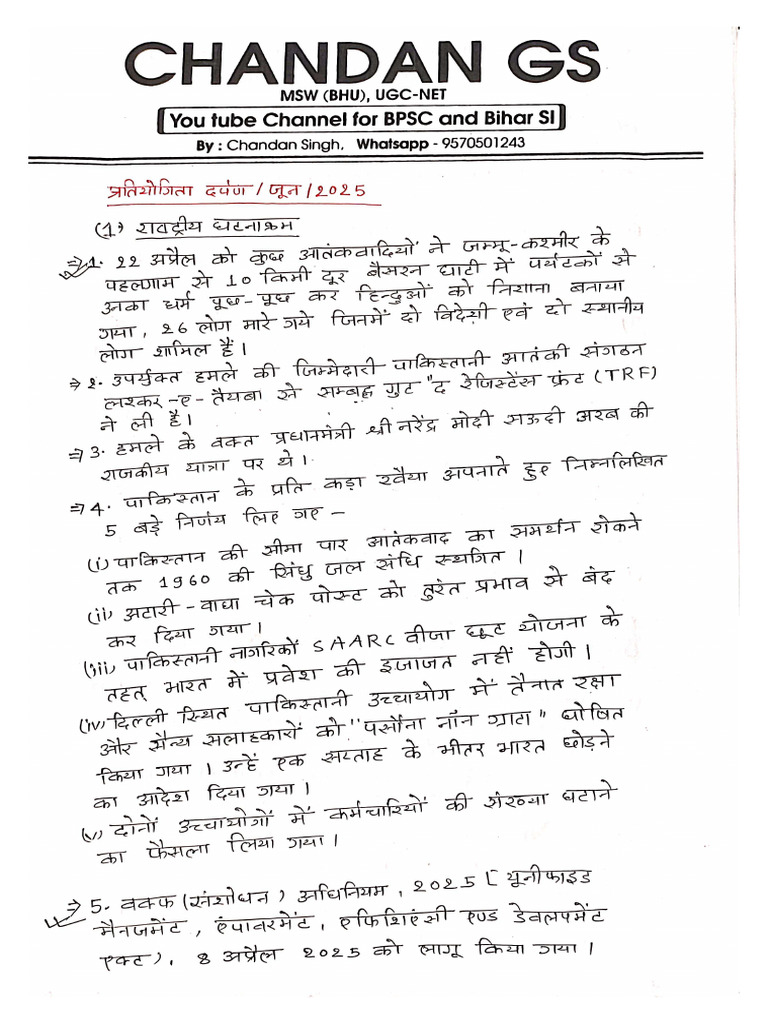 CHANDAN GS
MSW (BHU), UGC-NET
You tube Channel for BPSC and Bihar SI
By : Chandan Singh, Whatsapp - 9570501243
प्रतियोगिता दर्पण / जून / 2025
(1) राष्ट्रीय घटनाक्रम
⇒1. 22 अप्रैल को कुछ आतंकवादियों ने जम्मू-कश्मीर के
पहलगाम से 10 किमी दूर बैसरन घाटी में पर्यटकों से
उनका धर्म पूछ-पूछ कर हिन्दुओं को निशाना बनाया
गया, 26 लोग मारे गये जिनमें दो विदेशी एवं दो स्थानीय
लोग शामिल हैं।
⇒2. उपर्युक्त हमले की जिम्मेदारी पाकिस्तानी आतंकी संगठन
लश्कर-ए-तैयबा से सम्बद्ध गुट "द रेजिस्टेंस फ्रंट (TRF)
ने ली है।
⇒3. हमले के वक्त प्रधानमंत्री श्री नरेंद्र मोदी सऊदी अरब की
राजकीय यात्रा पर थे।
⇒4. पाकिस्तान के प्रति कड़ा रवैया अपनाते हुए निम्नलिखित
5 बड़े निर्णय लिए गए -
(i) पाकिस्तान की सीमा पार आतंकवाद का समर्थन रोकने
तक 1960 की सिंधु जल संधि स्थगित।
(ii) अटारी - वाघा चेक पोस्ट को तुरंत प्रभाव से बंद
कर दिया गया।
(iii) पाकिस्तानी नागरिकों SAARC वीजा छूट योजना के
तहत् भारत में प्रवेश की इजाजत नहीं होगी।
(iv) दिल्ली स्थित पाकिस्तानी उच्चायोग में तैनात रक्षा
और सैन्य सलाहकारों को "पर्सोना नॉन ग्राटा" घोषित
किया गया। उन्हें एक सप्ताह के भीतर भारत छोड़ने
का आदेश दिया गया।
(v) दोनों उच्चायोगों में कर्मचारियों की संख्या घटाने
का फैसला लिया गया।
⇒5. वक्फ (संशोधन) अधिनियम, 2025 [यूनीफाइड
मैनजमेंट, एंपावरमेंट, एफिशिएंसी एण्ड डेवलपमेंट
एक्ट), 8 अप्रैल 2025 को लागू किया गया।